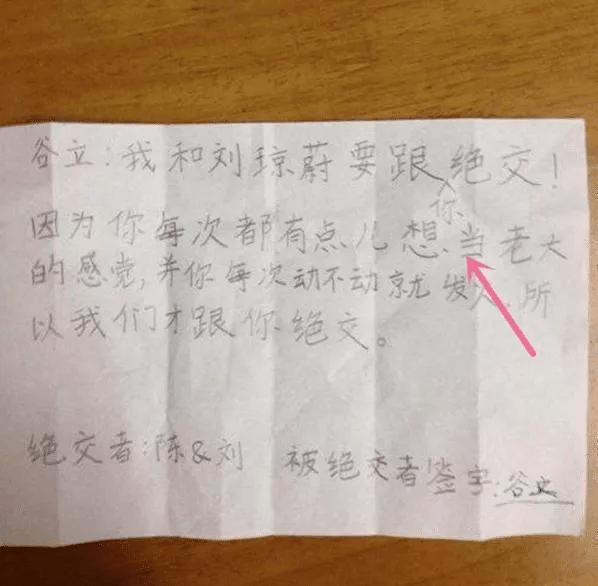 谷立:我和刘琼蔚要跟你绝交!
因为你每次都有点儿想当老大
的感觉,并你每次动不动就发火,所
以我们才跟你绝交。
绝交者:陈&刘 被绝交者签字:谷立